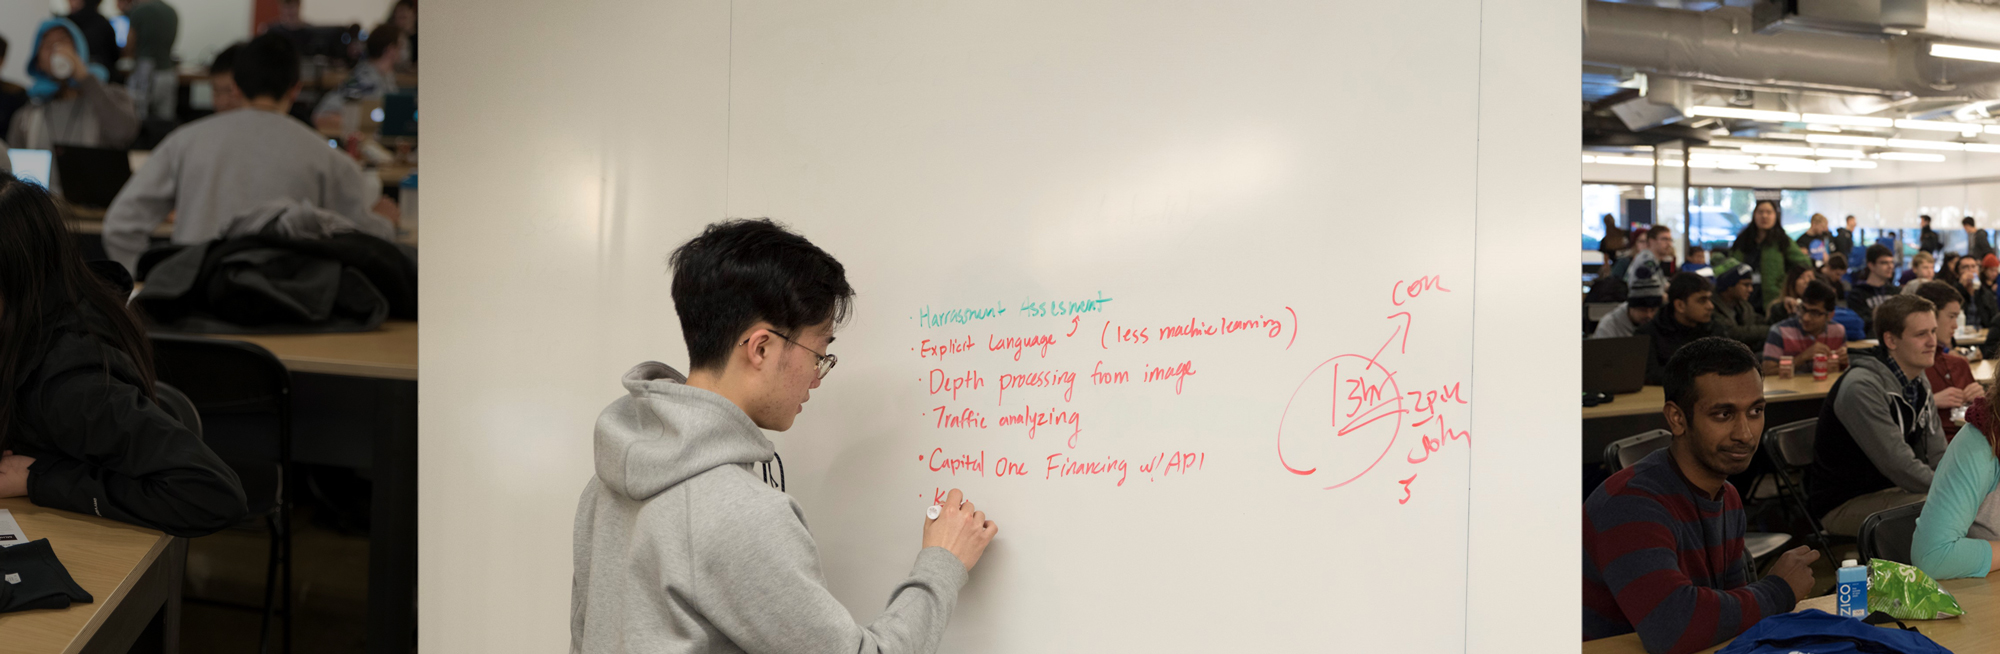 · Harrasment Assesment
· Explicit Language (less machine learning)
· Depth processing from image
· Traffic analyzing
· Capital One Financing w/ API
· K
con
13hr
2pm
5
ZICO